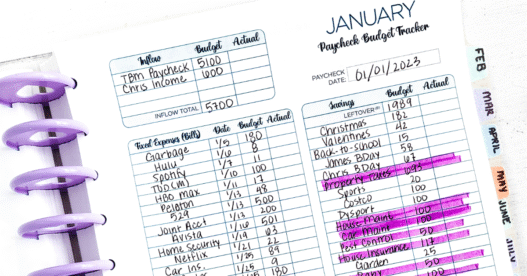 JANUARY
Paycheck Budget Tracker
PAYCHECK DATE: 01/01/2023
Inflow Budget Actual
TBM Paycheck 5100
Chris Income 600
INFLOW TOTAL 5700
Fixed Expenses (Bills) Date Budget Actual
Garbage 1/5 180
Hulu 1/6 8
Spotify 1/7 11
TUD 1/10 100
HBO max 1/11 12
Peloton 1/13 48
529 1/13 500
Joint Acct 1/13 200
Avista 1/16 501
Home Security 1/17 63
Netflix 1/21 22
Car Ins. 1/25
180
Savings Budget Actual
LEFTOVER 1989
Christmas 182
Valentines 42
Back-to-School 15
James BDay 58
Chris BDay 67
Property Taxes 693
Sports 20
Costco 100
Dysport 100
House Maint 100
Car Maint 100
Pest Control 50
House Insurance 117
Garden 25
100
FEB
MAR
APRIL
MAY
JUNE
JULY